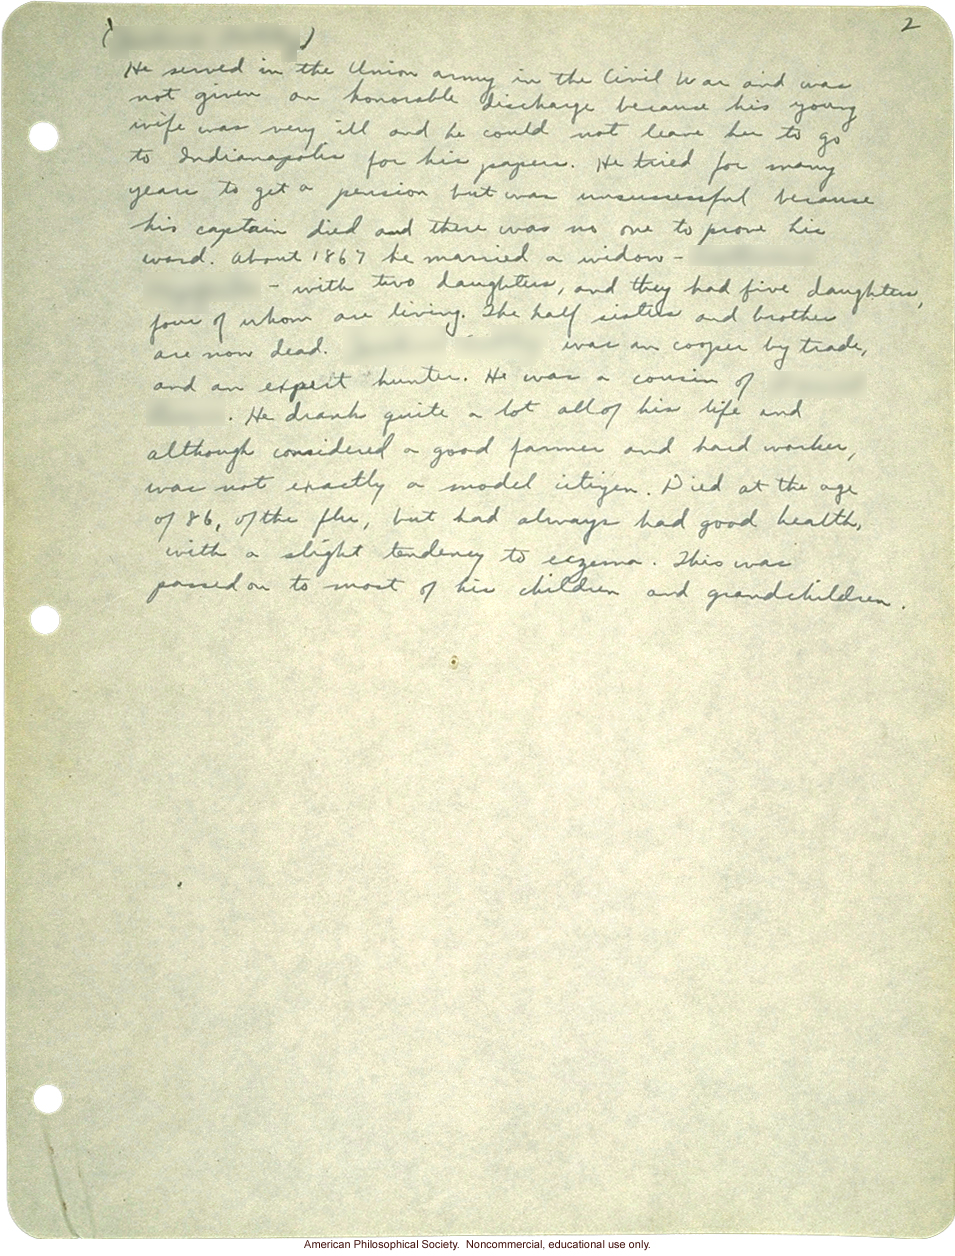 2
( )
He served in the Union army in the Civil War and was
not given an honorable discharge because his young
wife was very ill and he could not leave her to go
to Indianapolis for his papers. He tried for many
years to get a pension but was unsucessful because
his captain died and there was no one to prove his
word. About 1867 he married a widow -
- with two daughters, and they had five daughters,
four of whom are living. The half sisters and brother
are now dead. was an cooper by trade,
and an expert hunter. He was a cousin of
. He drank quite a lot all of his life and
although considered a good farmer and hard worker,
was not exactly a model citizen. Died at the age
of 86, of the flu, but had always had good health,
with a slight tendency to eczema. This was
passed on to most of his children and grandchildren.
American Philosophical Society. Noncommercial, educational use only.